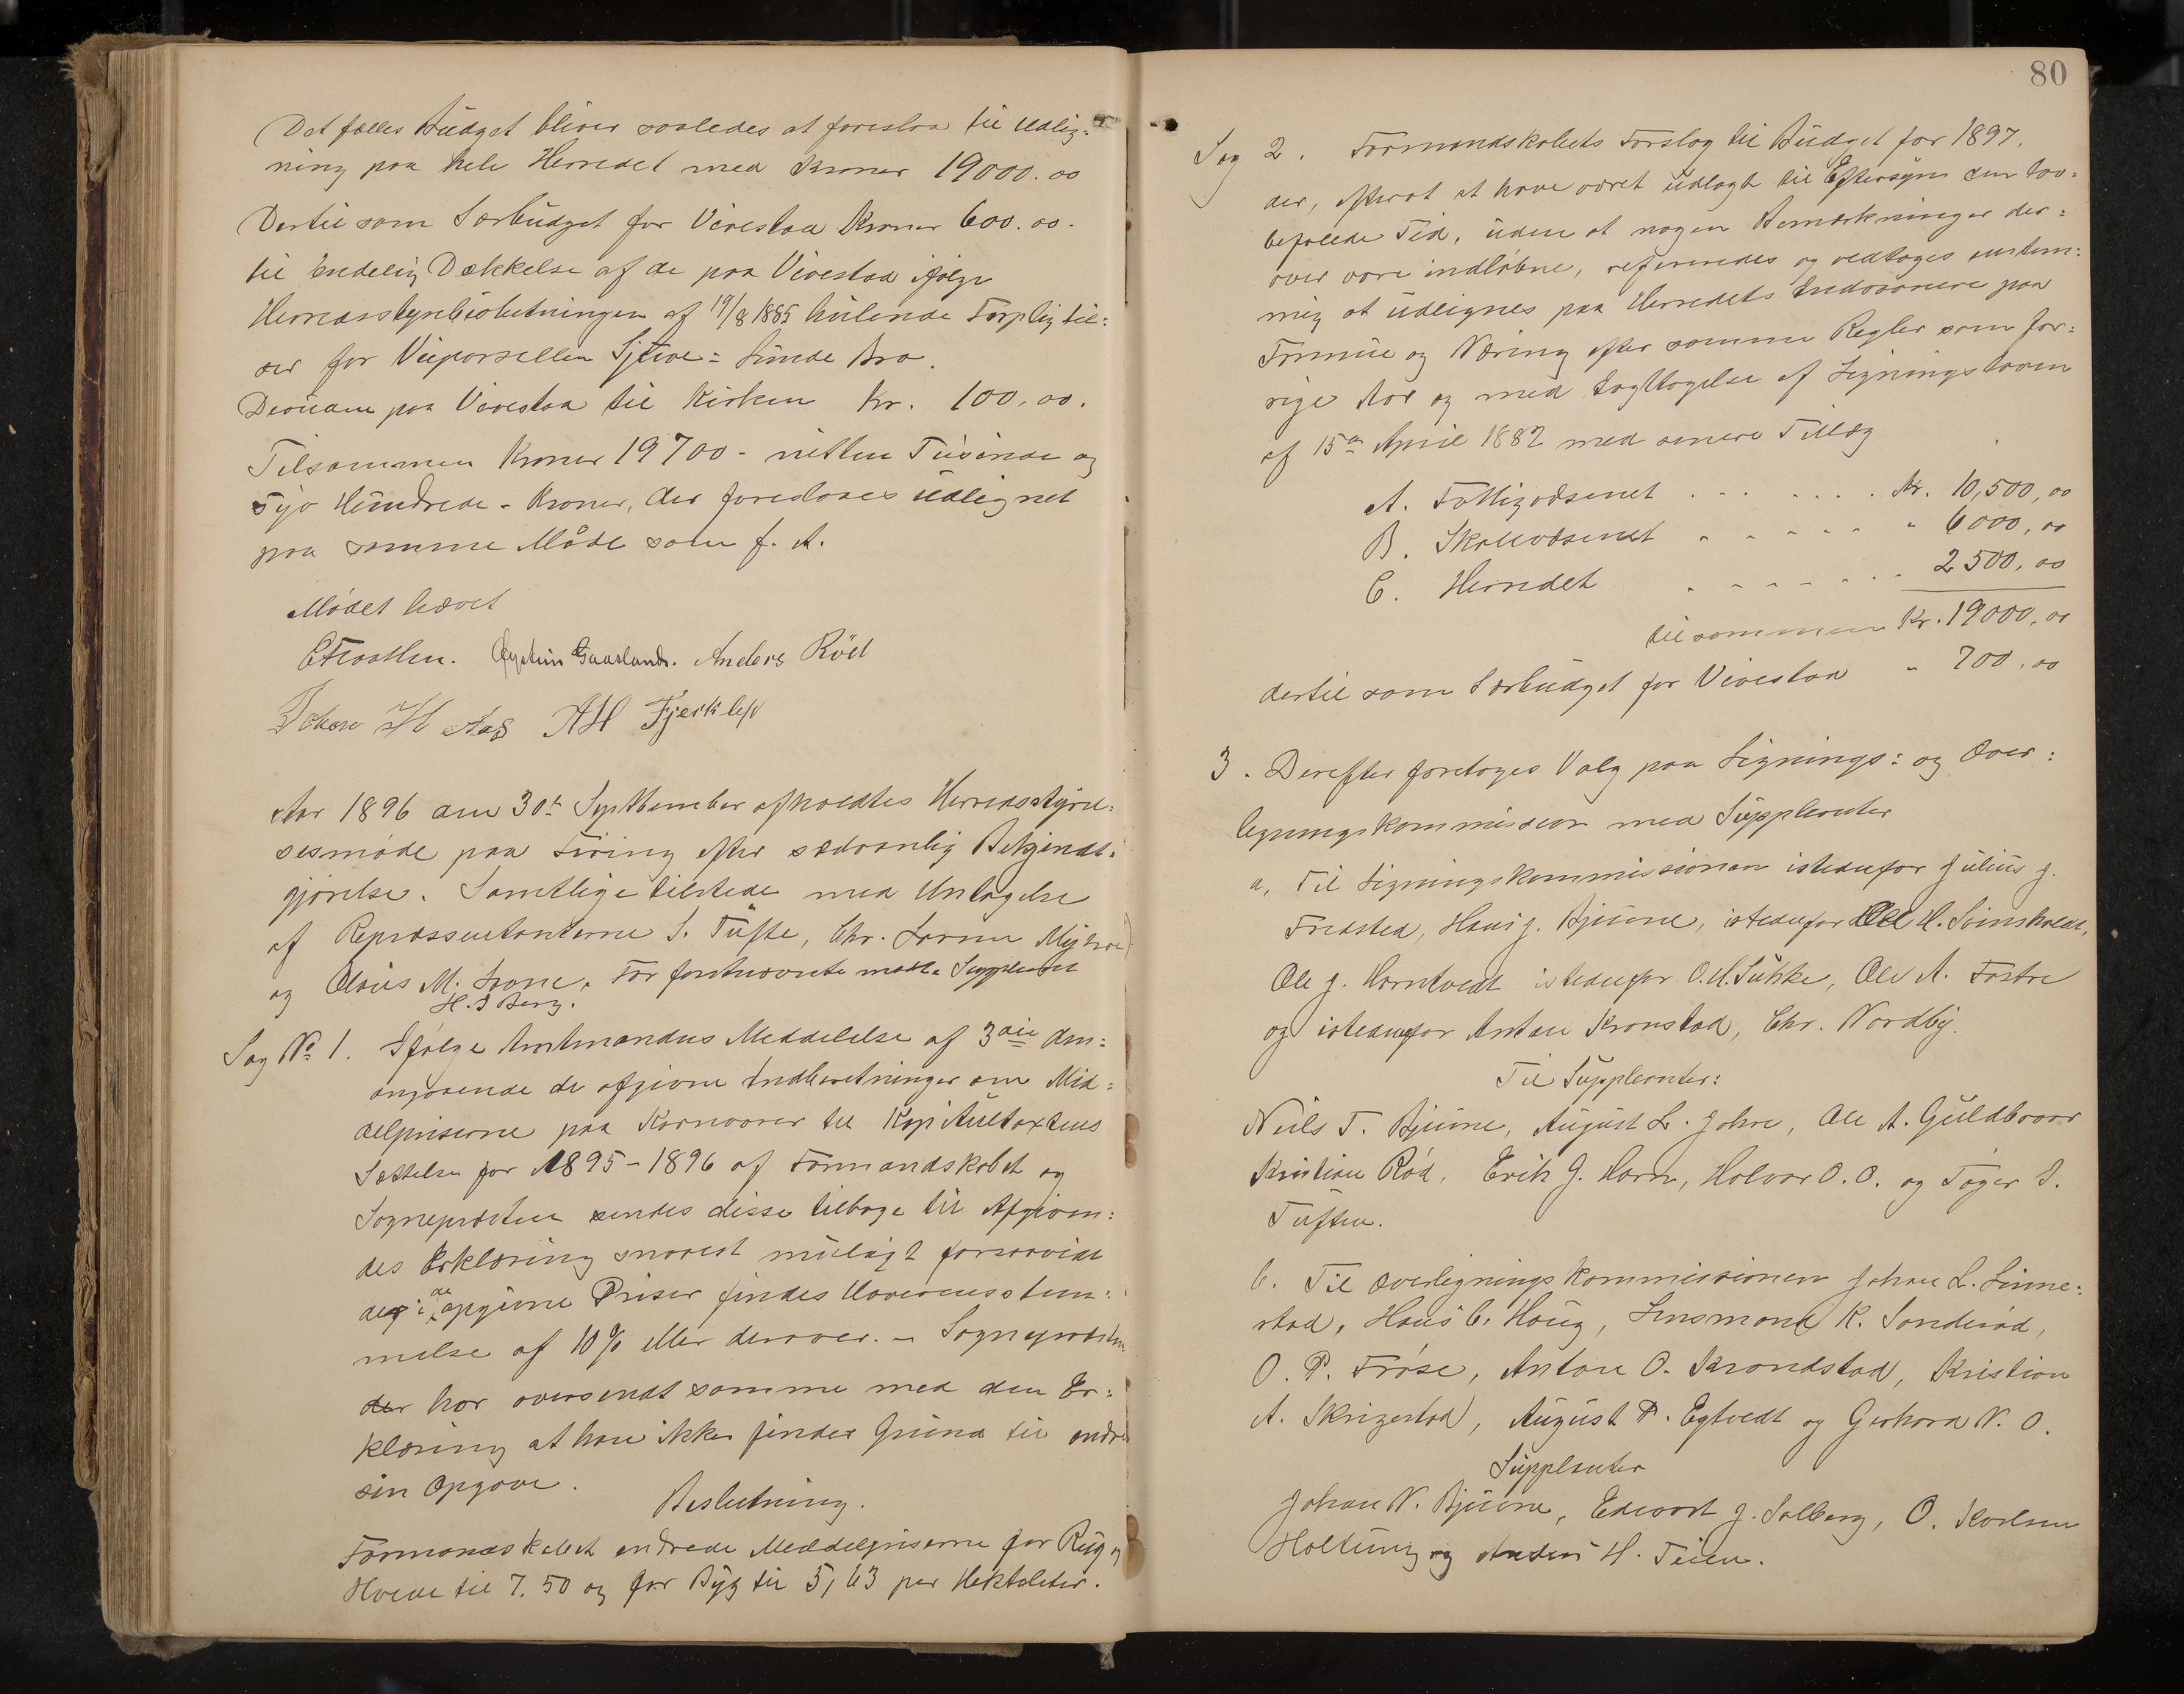 Det fælles Budget bliver saaledes at foreslaa til Udlig=
ning paa hele Herredet med Kroner 19000.00
Dertil som Særbudget for Vivestad Kroner 600.00.
til endelig Dækkelse af de paa Vivestad ifølge
Herredsstyrelsesbeslutningen af 19/8 1885 hvilende Forpligtel=
ser for Veiparsellen Sjue=Sunde Bro.
Desuden paa Vivestad til Kirken Kr. 100,00.
Tilsammen Kroner 19700 - nitten Tusinde og
Syv Hundrede - Kroner, der foreslaaes udlignet
paa samme Måde som f. A.
Mødet hævet
Øystein Gaasland. Anders Röd
Johan Aas AH Fjerkleiv
Aar 1896 den 30te September afholdtes Herredsstyrel=
sesmøde paa Firing efter sædvanlig Bekjendt=
gjørelse. Samtlige tilstede med Undtagelse
af Repræsentanterne S. Tufte, Chr. Larsen Myhre
og Olaus M. Aasne. For førstnævnte mødte Suppleant
H. S Berg.
Sag No 1. Ifølge Amtmandens Meddelelse af 3die dm=
angaaende de afgivne Indberetninger om Mid=
delpriserne paa Kornvarer til Kapiteltaxtens
Sættelse for 1895-1896 af Formandskabet og
Sognepræsten sendes disse tilbage til Afgiven=
des Erklæring snarest muligt forsaavidt
der i de opgivne Priser findes Uoverensstem=
melse af 10% eller derover. - Sognepræsten
har oversendt samme med den Er=
klæring at han ikke finder Grund til ændre
sin Opgave.
Beslutning.
Formandskabet endrede Middelpriserne for Rug og
Hvede til 7.50 og for Byg til 5,63 per Hektoliter.
80
Sag 2. Formandskabets Forslag til Budget for 1897.
der, efterat at have været udlagt til Eftersyn den lov=
befalede Tid, uden at nogen Bemærkninger der=
over vare indløbne, refereredes og vedtoges enstem=
mig at udlignes paa Herredets Indvaanere paa
Formue og Næring efter samme Regler som for=
rige Aar og med Iagttagelse af Ligningsloven
af 15de April 1882 med senere Tillæg
A. Fattigvæsenet . . . . . . . Kr. 10,500,00
B. Skolevæsenet - - - - - " 6000,00
C. Herredet - - - - - - 2500,00
tilsammen Kr. 19000,00
dertil som Særbudget for Vivestad " 700.00
3. Derefter foretoges Valg paa Lignings= og Over=
ligningskommission med Suppleanter
a, Til Ligningskommissionen istedenfor Julius J.
Fredsted, Hans J. Bjune, istedenfor Ole H. Svinsholdt,
Ole J. Horntvedt istedenfor O. H. Suhke, Ole A. Fostre
og istedenfor Anton Kronstad, Chr. Nordby.
Til Suppleanter:
Neils T. Bjune, August L. Johre, Ole A. Guldbraar
Kristian Rød, Erik J. Horn, Holvar O. O. og Tøger S.
Tuften.
b. Til Overligningskommissionen Johan L. Linne=
stad, Hans C. Haug, Lensmand K. Sanderød,
O. P. Frøse, Anton O. Krondstad, Kristian
A. Skrigestad, August P. Egtvedt og Gerhard N. O.
Suppleanter
Johan N. Bjune, Edvart J. Solberg, O. Karlsen
Holtung og Anders H. Teien.